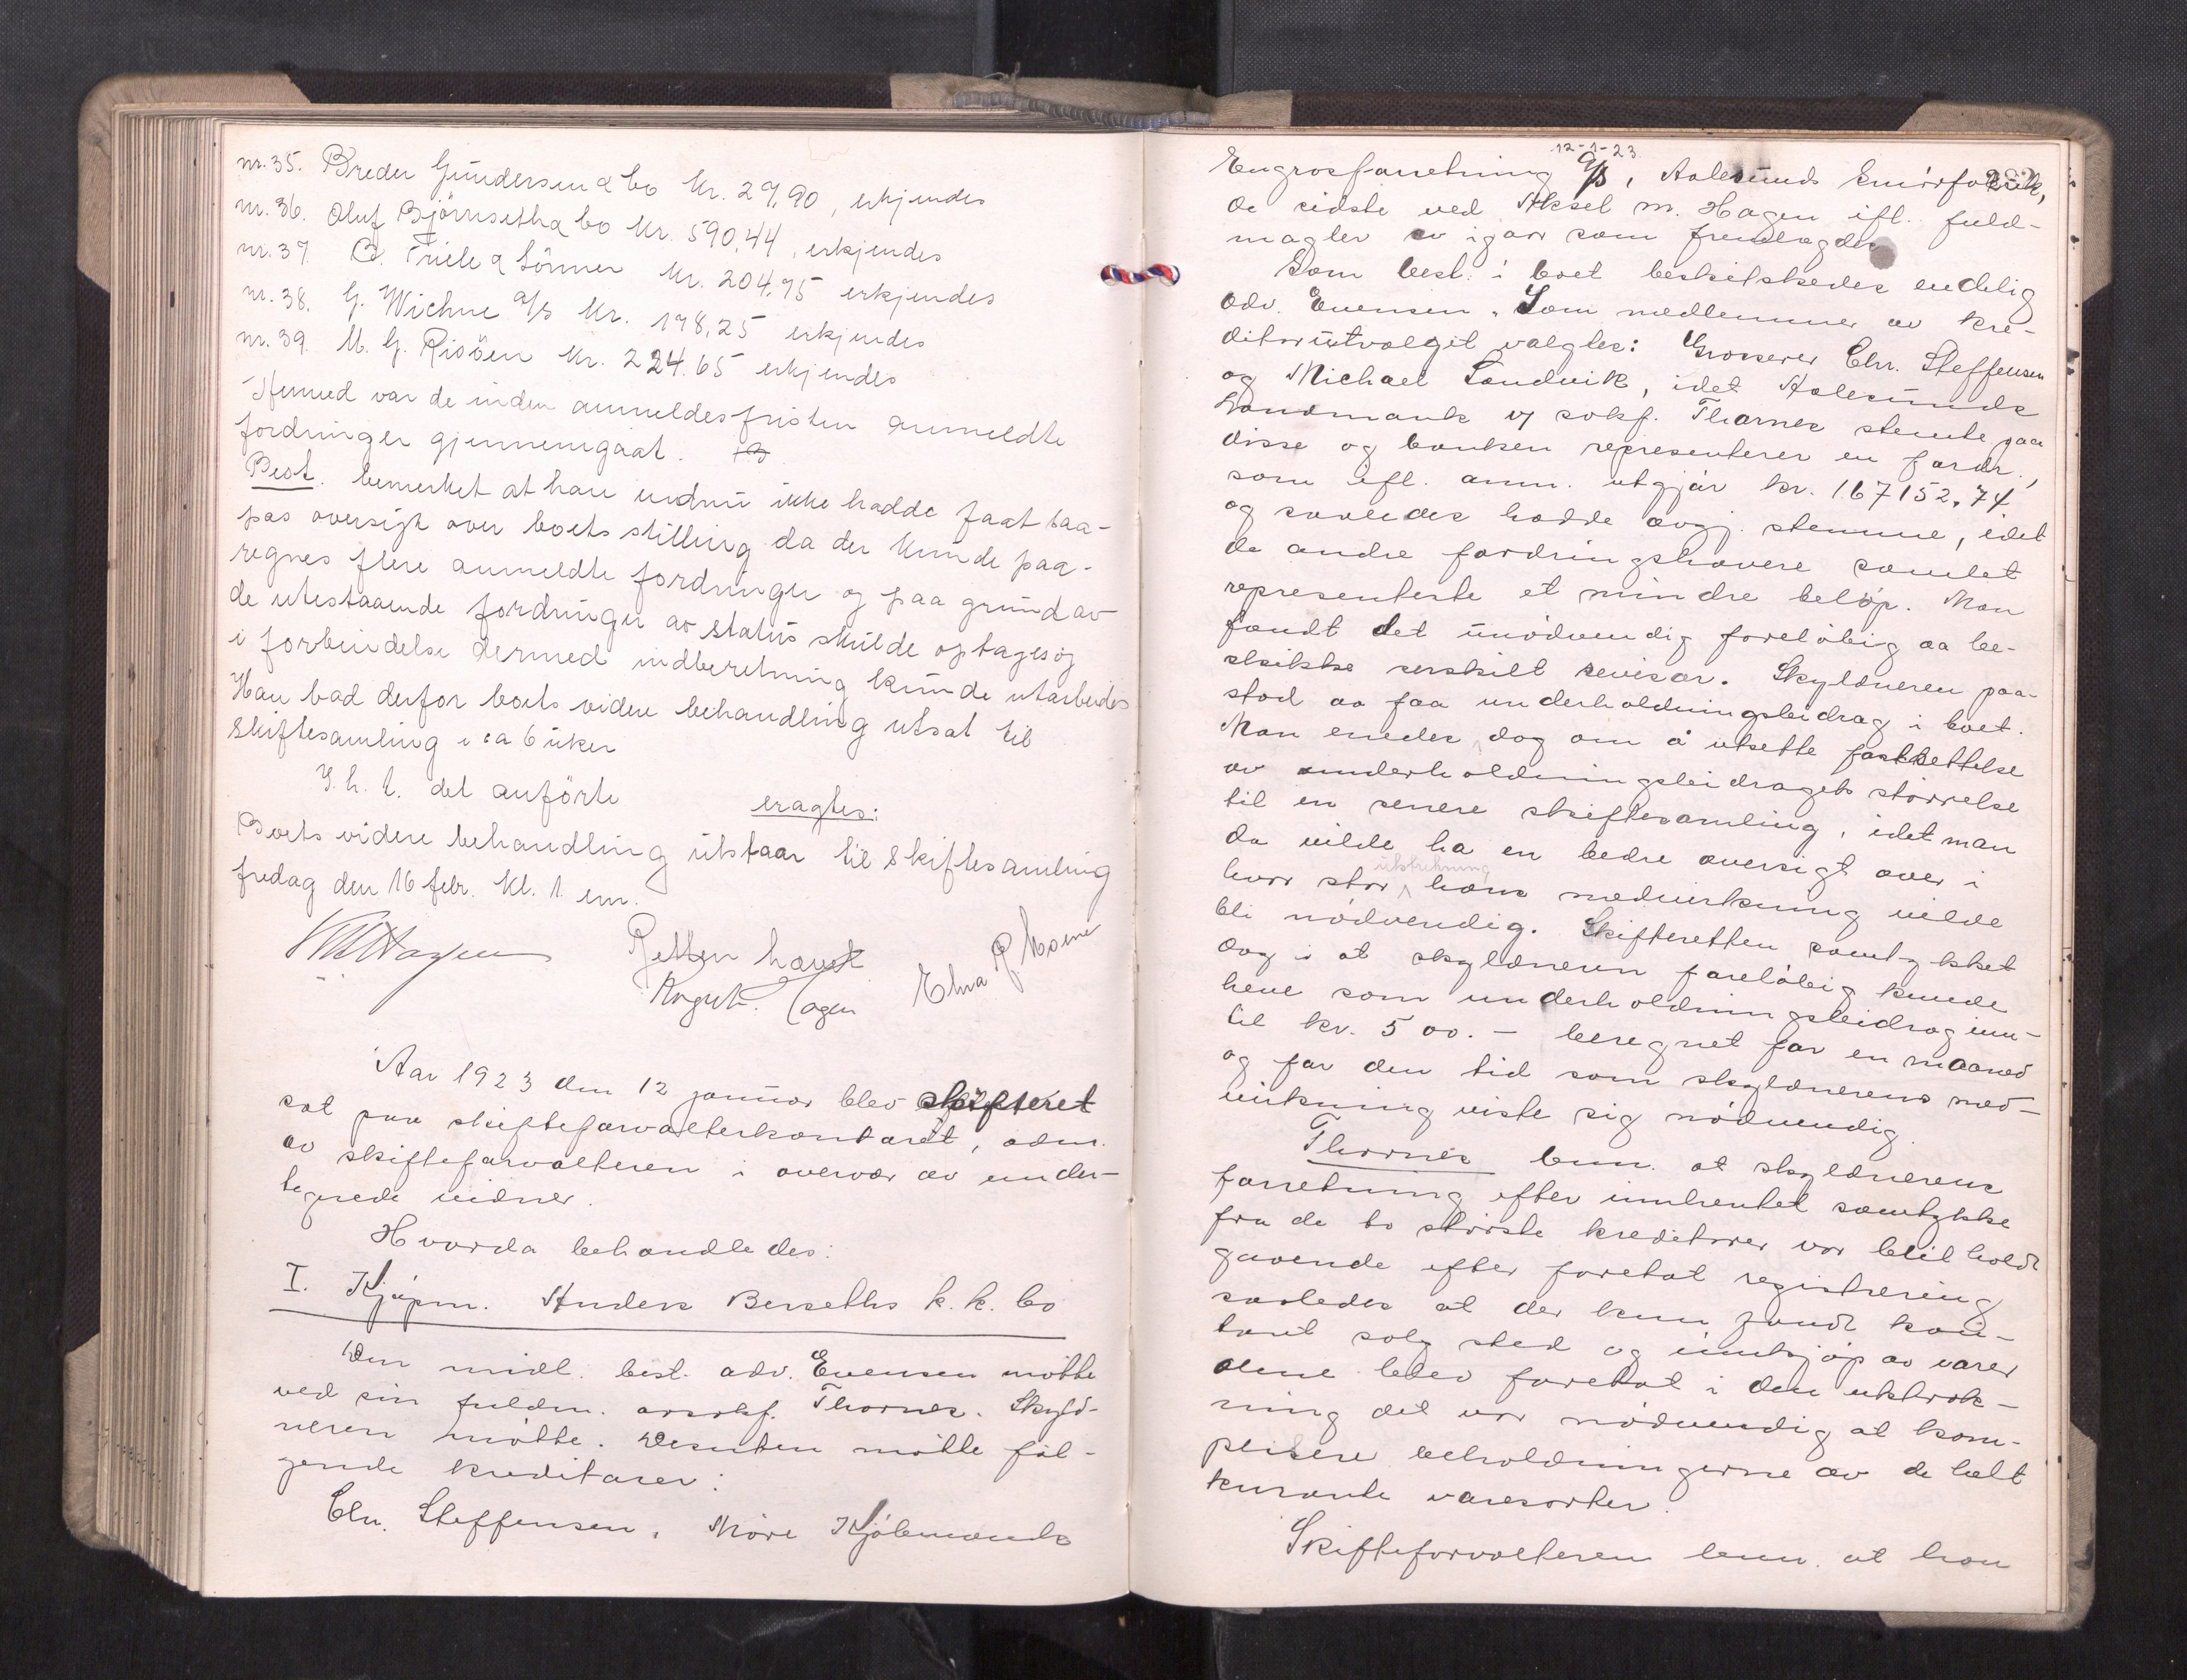 nr. 35. Breder Gundersen & Co kr. 29,90, erkjendes
nr. 36. Oluf Bjørnseth & Co kr. 590,44, erkjendes
nr. 37. B. Friele & Sönner kr. 204,95 erkjendes
nr. 38. G. Wichne A/S kr. 198,25 erkjendes
nr. 39. M. G. Risöen kr. 224.65 erkjendes
Hermed var de inden anmeldesfristen anmeldte
fordringer gjennemgaat.
Best. bemerket at han endnu ikke hadde faat saa-
pas oversigt over boets stilling da der kunde paa-
regnes flere anmeldte fordringer og paa grund av
de utestaaende fordringer av status skulde optages og
i forbindelse dermed indberetning kunde utarbeides
Han bad derfor boets videre behandling utsat til
skiftesamling i ca 6 uker
I. h. t. det anförte
eragtes:
Boets videre behandling utstaar til skiftesamling
fredag den 16 febr. kl. 1 em.
Retten hævet
Elna R. Moene
Aar 1923 den 12 januar blev skifteret
sat paa skifteforvalterkontoret, adm.
av skifteforvalteren i overvær av under-
tegnede vidner.
Hvorda behandledes:
I. Kjøpm. Anders Berseths k. k. bo
Den midl. best. adv. Evensen møtte
ved sin fuldm. Thornes. Skyld-
neren møtte. Desuten møtte føl-
gende kreditorer:
Chr. Steffensen, Møre Kjøbmands
12-1-23
Engrosforretning A/S, Aalesunds Smørfabrik,
de sidste ved Aksel M. Hagen ifl. fuld-
magter av igaar som fremlagdes
Som best. i boet beskikkedes endelig
adv. Evensen. Som medlemmer av kre-
ditorutvalget valgtes: Grosserer Chr. Steffensen
og Michael Sandvik, idet Aalesunds
Landmandsb. v/ sakf. Thornes stemte paa
disse og banken representerer en fordr.,
som ifl. anm. utgjør kr. 167152,74
og saaledes hadde avgj. stemme, idet
de andre fordringshavere samlet
representerte et mindre beløp. Man
fandt det unødvendig foreløbig aa be-
skikke særskilt revisor. Skyldneren paa-
stod aa faa underholdningsbidrag i boet.
Man enedes dog om å utsette fastsettelse
av underholdningsbeidragets størrelse
til en senere skiftesamling, idet man
da vilde ha en bedre oversigt over i
hvor stor utstrekning hans medvirkning vilde
bli nødvendig. Skifteretten samtykket
dog i at skyldneren foreløbig kunde
heve som underholdningsbeidrag inn-
til kr. 500.- beregnet for en maaned
og for den tid som skyldnerens med-
virkning viste sig nødvendig.
Thornes bem. at skyldnerens
forretning efter innhentet samtykke
fra de to største kreditorer var blit holdt
gaaende efter foretat registrering
saaledes at der kun fandt kon-
tant salg sted og innkjøp av varer
alene blev foretat i den utstrek-
ning det var nødvendig at kom-
plisere beholdningerne av de helt
kurante varesorter.
Skifteforvalteren bem. at han